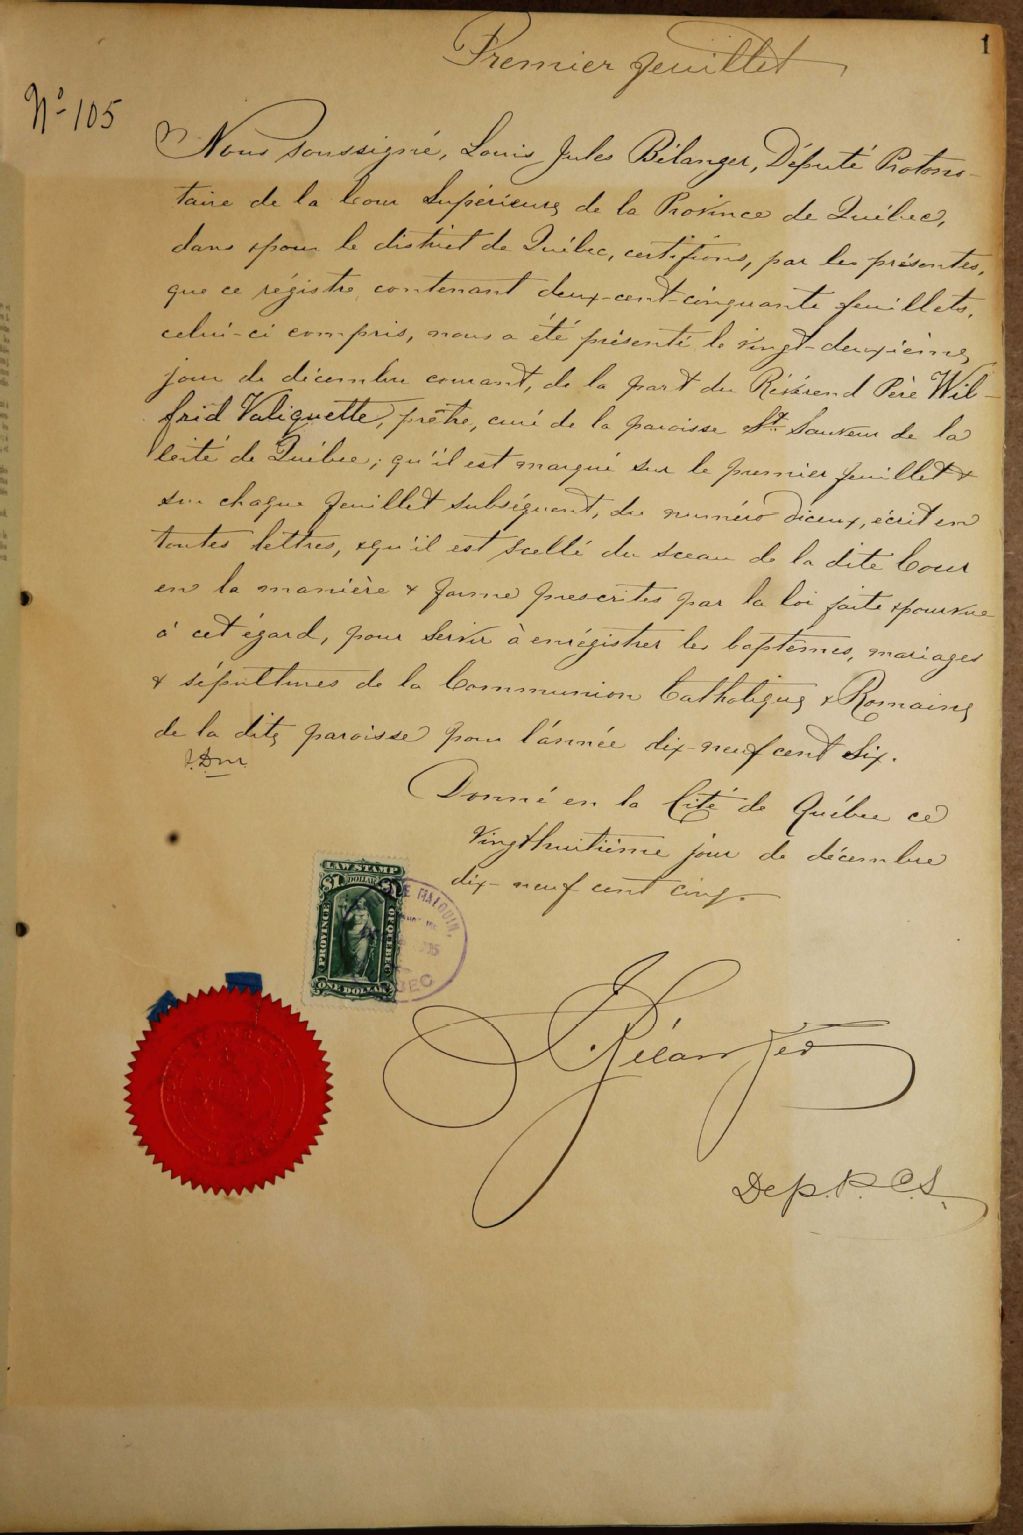 1
Premier feuillet
No 105
Nous soussigné, Louis Jules Bélanger, Député Protono-
taire de la Cour Supérieure de la Province de Québec,
dans & pour le district de Québec, certifions, par les présentes,
que ce régistre contenant deux-cent-cinquante feuillets,
celui-ci compris, nous a été présenté le vingt-deuxième
jour de décembre courant, de la part du Révérend Père Wil-
frid Valiquette, prêtre, curé de la paroisse St. Sauveur de la
Cité de Québec; qu'il est marqué sur le premier feuillet &
sur chaque feuillet subséquent, du numéro d'iceux, écrit en
toutes lettres, & qu'il est scellé du sceau de la dite Cour
en la manière & forme prescrites par la loi faite & pourvue
à cet égard, pour servir à enrégistrer les baptêmes, mariages
& sépultures de la Communion Catholique & Romaine
de la dite paroisse pour l'année dix-neuf cent six.
Donné en la Cité de Québec ce
vingthuitième jour de décembre
dix-neuf cent cinq.
LAW STAMP
$1 DOLLAR $1
PROVINCE OF QUEBEC
ONE DOLLAR
MALOUIN,
Bélanger
Dep. P. C. S.